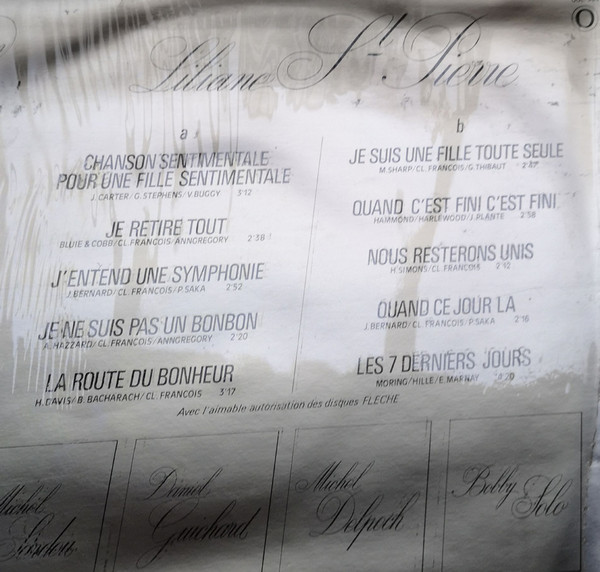 Liliane St-Pierre
a
CHANSON SENTIMENTALE
POUR UNE FILLE SENTIMENTALE
J. CARTER/G. STEPHENS/V. BUGGY 3'12
JE RETIRE TOUT
BLUIE & COBB/CL. FRANCOIS/ANNGREGORY 2'38
J'ENTEND UNE SYMPHONIE
J. BERNARD/CL. FRANCOIS/P. SAKA 2'52
JE NE SUIS PAS UN BONBON
A. HAZZARD/CL. FRANCOIS/ANNGREGORY 2'20
LA ROUTE DU BONHEUR
H. DAVIS/B. BACHARACH/CL. FRANCOIS 3'17
b
JE SUIS UNE FILLE TOUTE SEULE
M. SHARP/CL. FRANCOIS/G. THIBAUT
QUAND C'EST FINI C'EST FINI
HAMMOND/HARLEWOOD/J. PLANTE 2'58
NOUS RESTERONS UNIS
H. SIMONS/CL. FRANCOIS
QUAND CE JOUR LA
J. BERNARD/CL. FRANCOIS/P. SAKA 2'16
LES 7 DERNIERS JOURS
MORING/HILLE/E. MARNAY
Avec l'aimable autorisation des disques FLECHE
Michel
Sardou
Daniel
Guichard
Michel
Delpech
Bobby
Solo